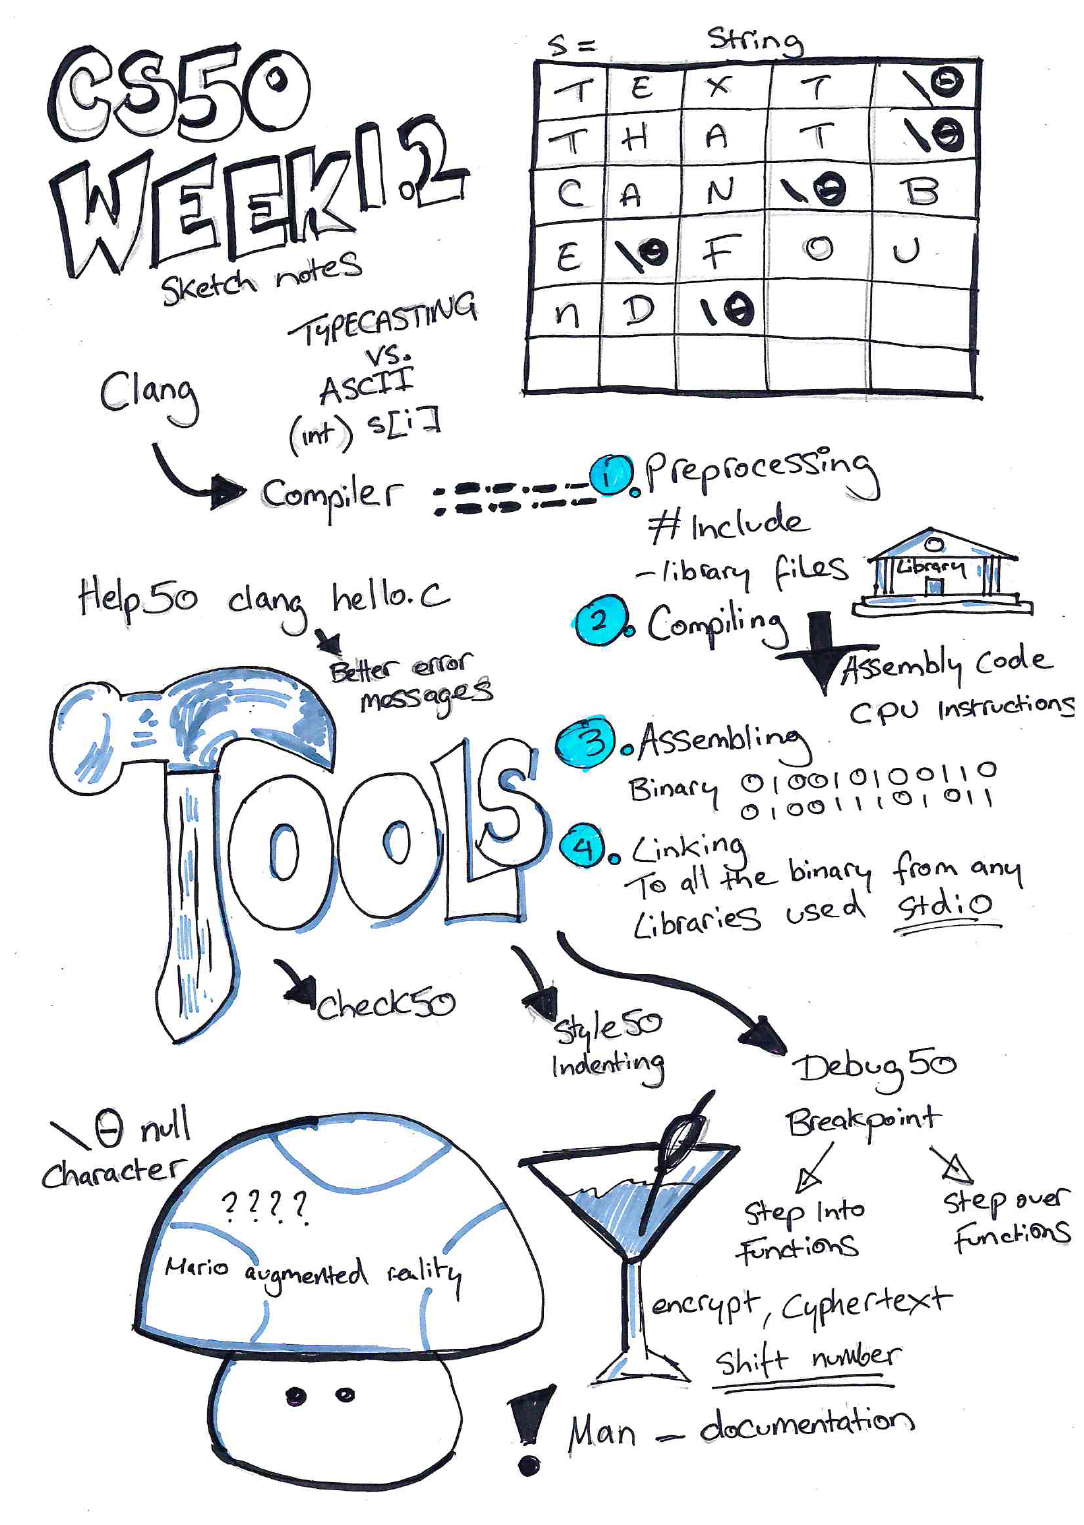 CS50
WEEK 1.2
Sketch notes
S = String
T E X T \0
T H A T \0
C A N \0 B
E \0 F O U
n D \0
TYPECASTING
VS.
ASCII
(int) s[i]
Clang
Compiler
1. Preprocessing
# Include
- library files
Library
2. Compiling
Assembly Code
CPU Instructions
3. Assembling
Binary 010010100110
010011101011
4. Linking
To all the binary from any
Libraries used stdio
Help50 clang hello.c
Better error
messages
TOOLS
Check50
Style50
Indenting
Debug50
Breakpoint
Step Into
Functions
Step over
Functions
\0 null
Character
? ? ? ?
Mario augmented reality
encrypt, Cyphertext
Shift number
! Man - documentation